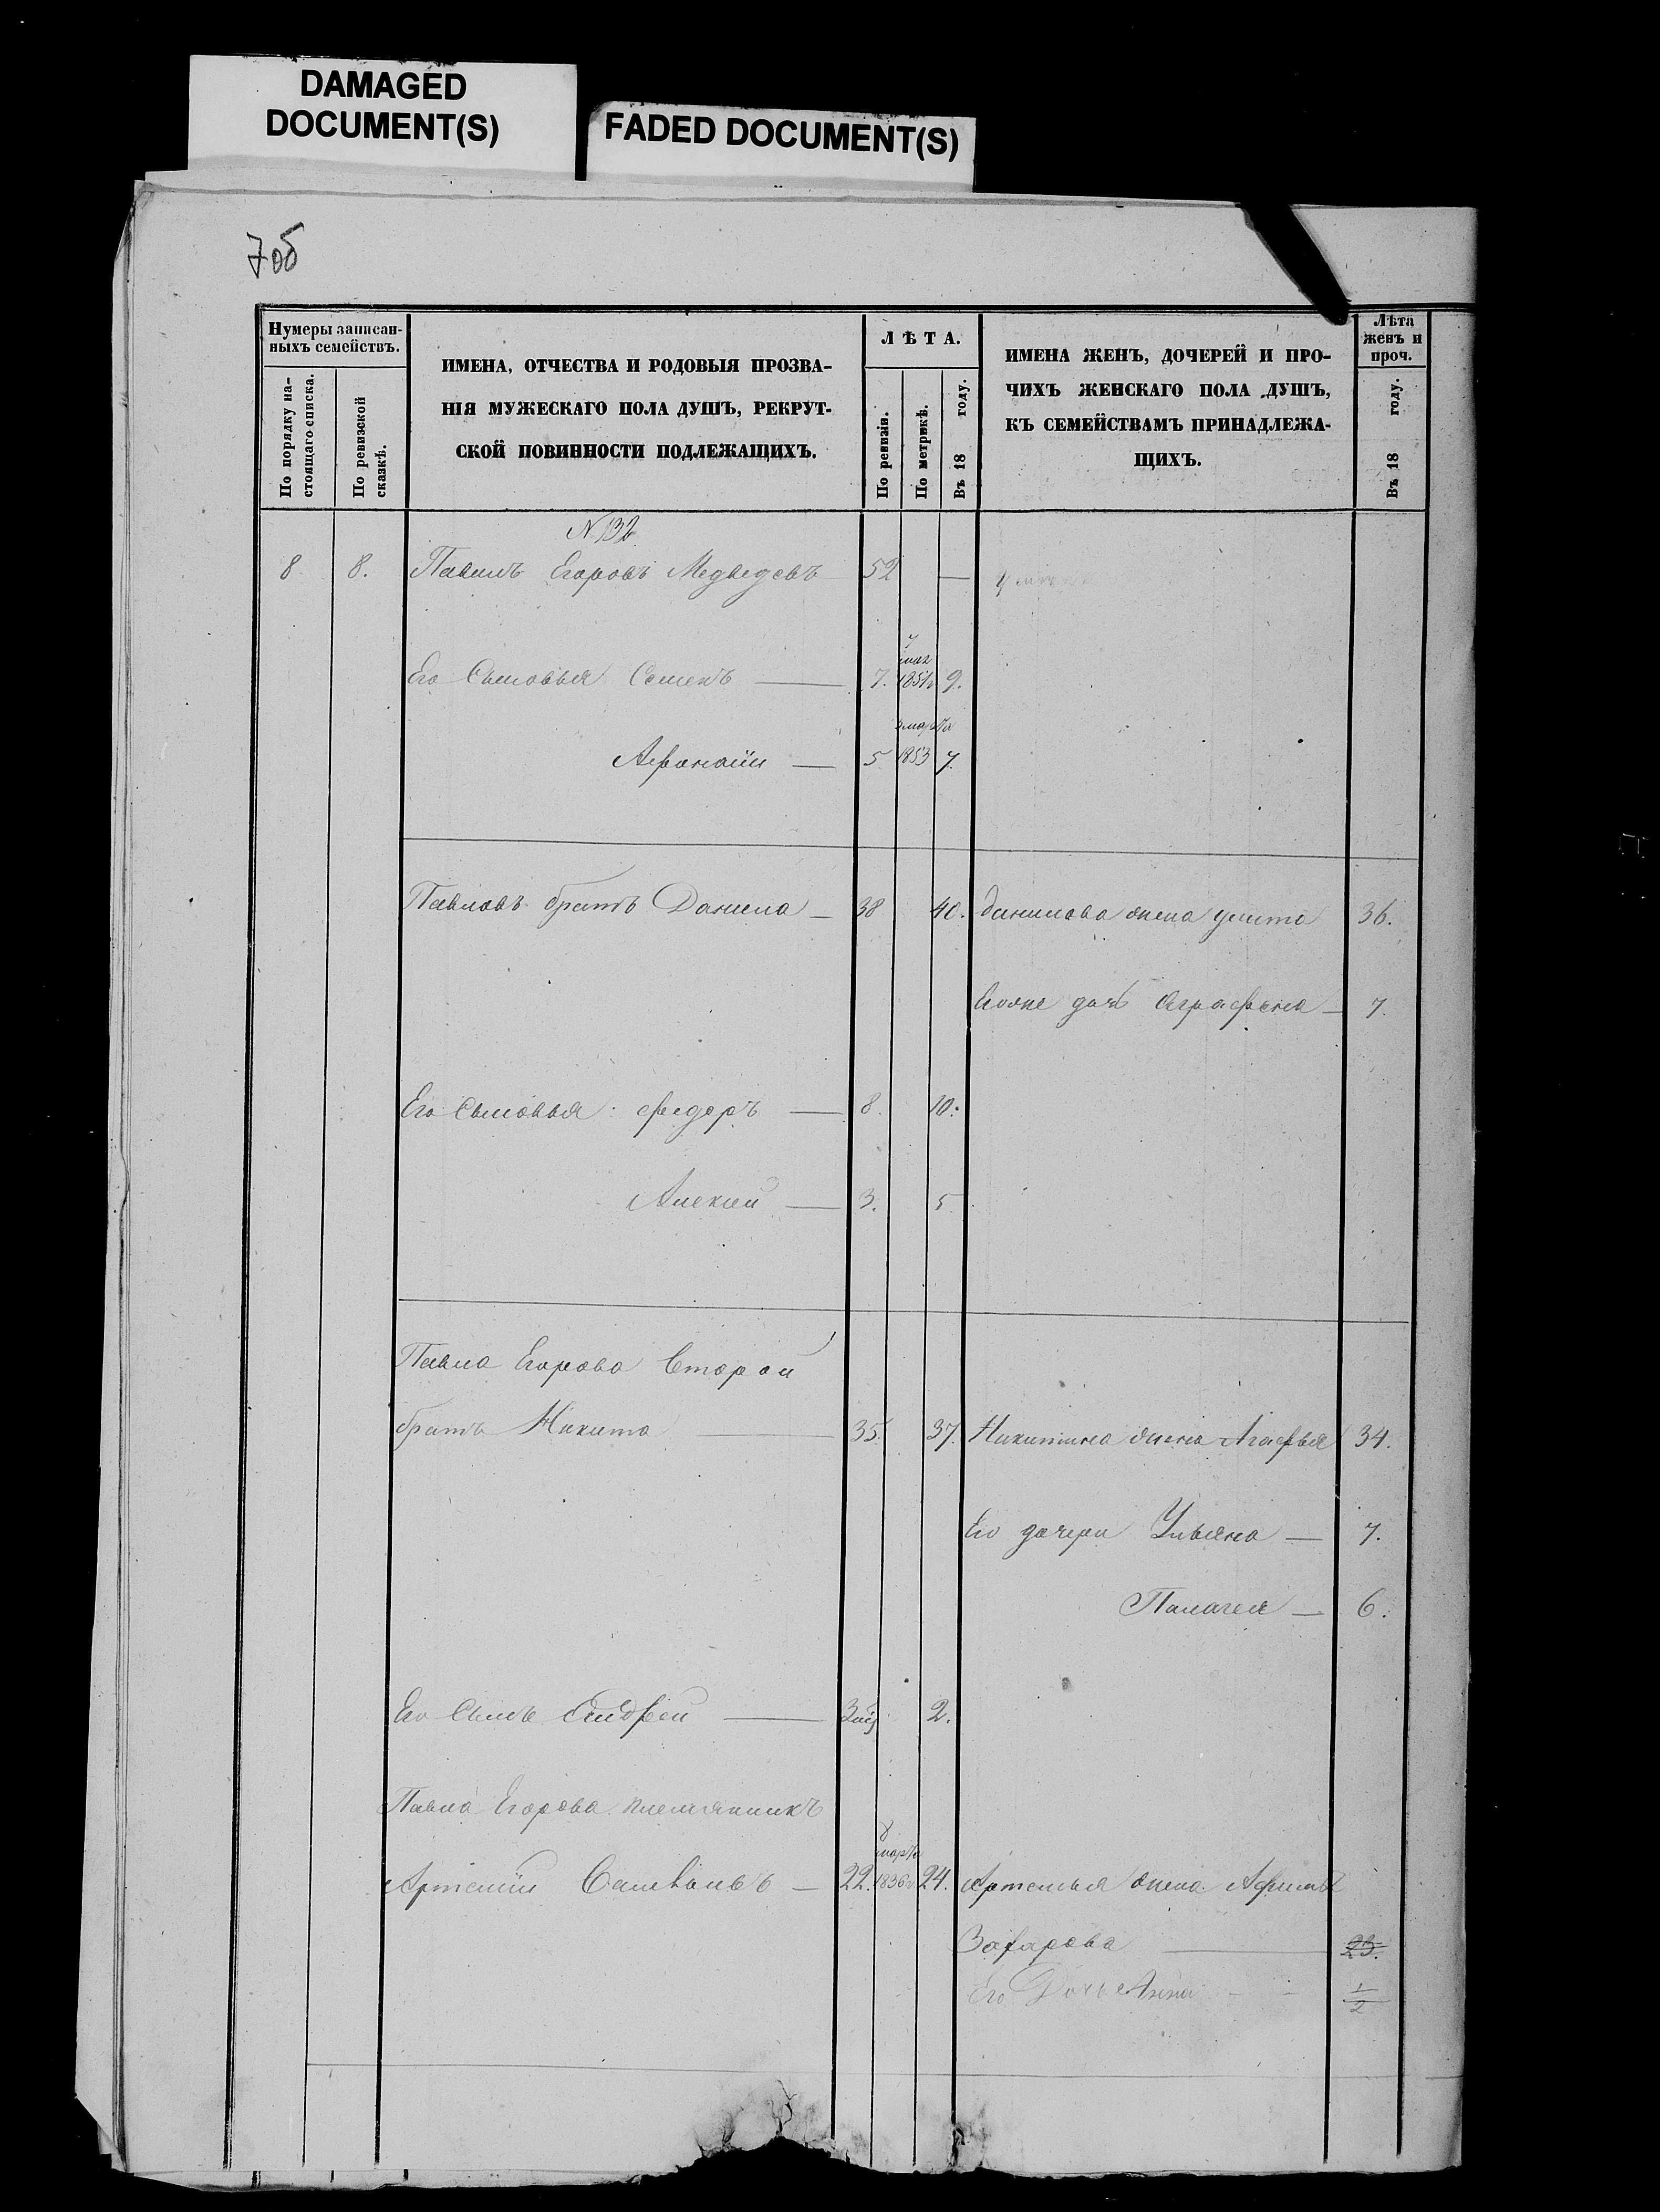 DAMAGED
DOCUMENT(S)
FADED DOCUMENT(S)
7об
Нумеры записан-
ныхъ семействъ.
По порядку на-
стоящаго списка.
По ревизской
сказкѣ.
ИМЕНА, ОТЧЕСТВА И РОДОВЫЯ ПРОЗВА-
НІЯ МУЖЕСКАГО ПОЛА ДУШЪ, РЕКРУТ-
СКОЙ ПОВИННОСТИ ПОДЛЕЖАЩИХЪ.
ЛѢТА.
По ревизіи.
По метрикѣ.
Въ 18 году.
ИМЕНА ЖЕНЪ, ДОЧЕРЕЙ И ПРО-
ЧИХЪ ЖЕНСКАГО ПОЛА ДУШЪ,
КЪ СЕМЕЙСТВАМЪ ПРИНАДЛЕЖА-
ЩИХЪ.
Лѣта
женъ и
проч.
Въ 18 году.
N 132
8 8. Павелъ Егоровъ Медведевъ 52 —
Его Сыновья Семенъ — 7. 1851 9.
марта
Афонасiи — 5 1853 7.
Павловъ братъ Данила — 38 40. Данилова жена улита 36.
Егоже дочь Аграфена — 7.
Его Сыновья: федоръ — 8. 10.
Алексѣй — 3. 5
Павла Егорова Второй
братъ Никита — 35. 37. Никитина жена Агафья 34.
Его дочери Ульяна — 7.
Палагея — 6.
Его Сынъ Андрей — 2.
Павла Егорова племянникъ
8
марта
Артемiй Савельевъ — 22. 1836 24. Артемья жена
Захарова — 23.
Его Дочь Анна - - 1/2